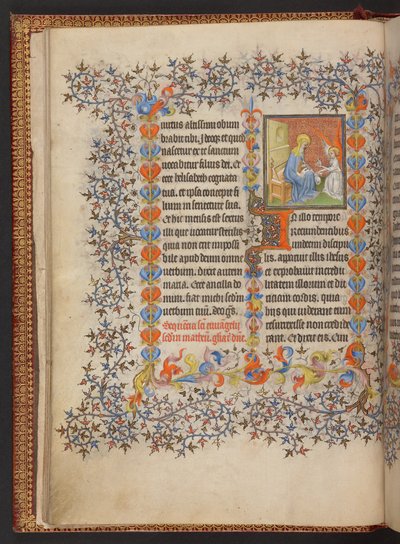 uirtus altissimi obum
brabit tibi. Ideoqꝫ et quod
nascetur ex te sanctum
uocabitur filius dei. Et
ecce helisabeth cognata
tua. et ipsa concepit fi
lium in senectute sua.
Et hic mensis est sextus
illi que uocatur sterilis
quia non erit impossi
bile apud deum omne
uerbum. Dixit autem
maria. Ecce ancilla do
mini. fiat michi scdm
uerbum tuū. Deo grs.
Seqncia sci euuāgelij
scdm matheū. gliā dne.
In illo tempore
Recumbentibus
undecim discipu
lis. apparuit illis ihesus
et exprobauit incredu
litatem illorum et du
riciam cordis. quia
hiis qui uiderant eum
resurrexisse non credide
rant. Et dixit eis. Eun